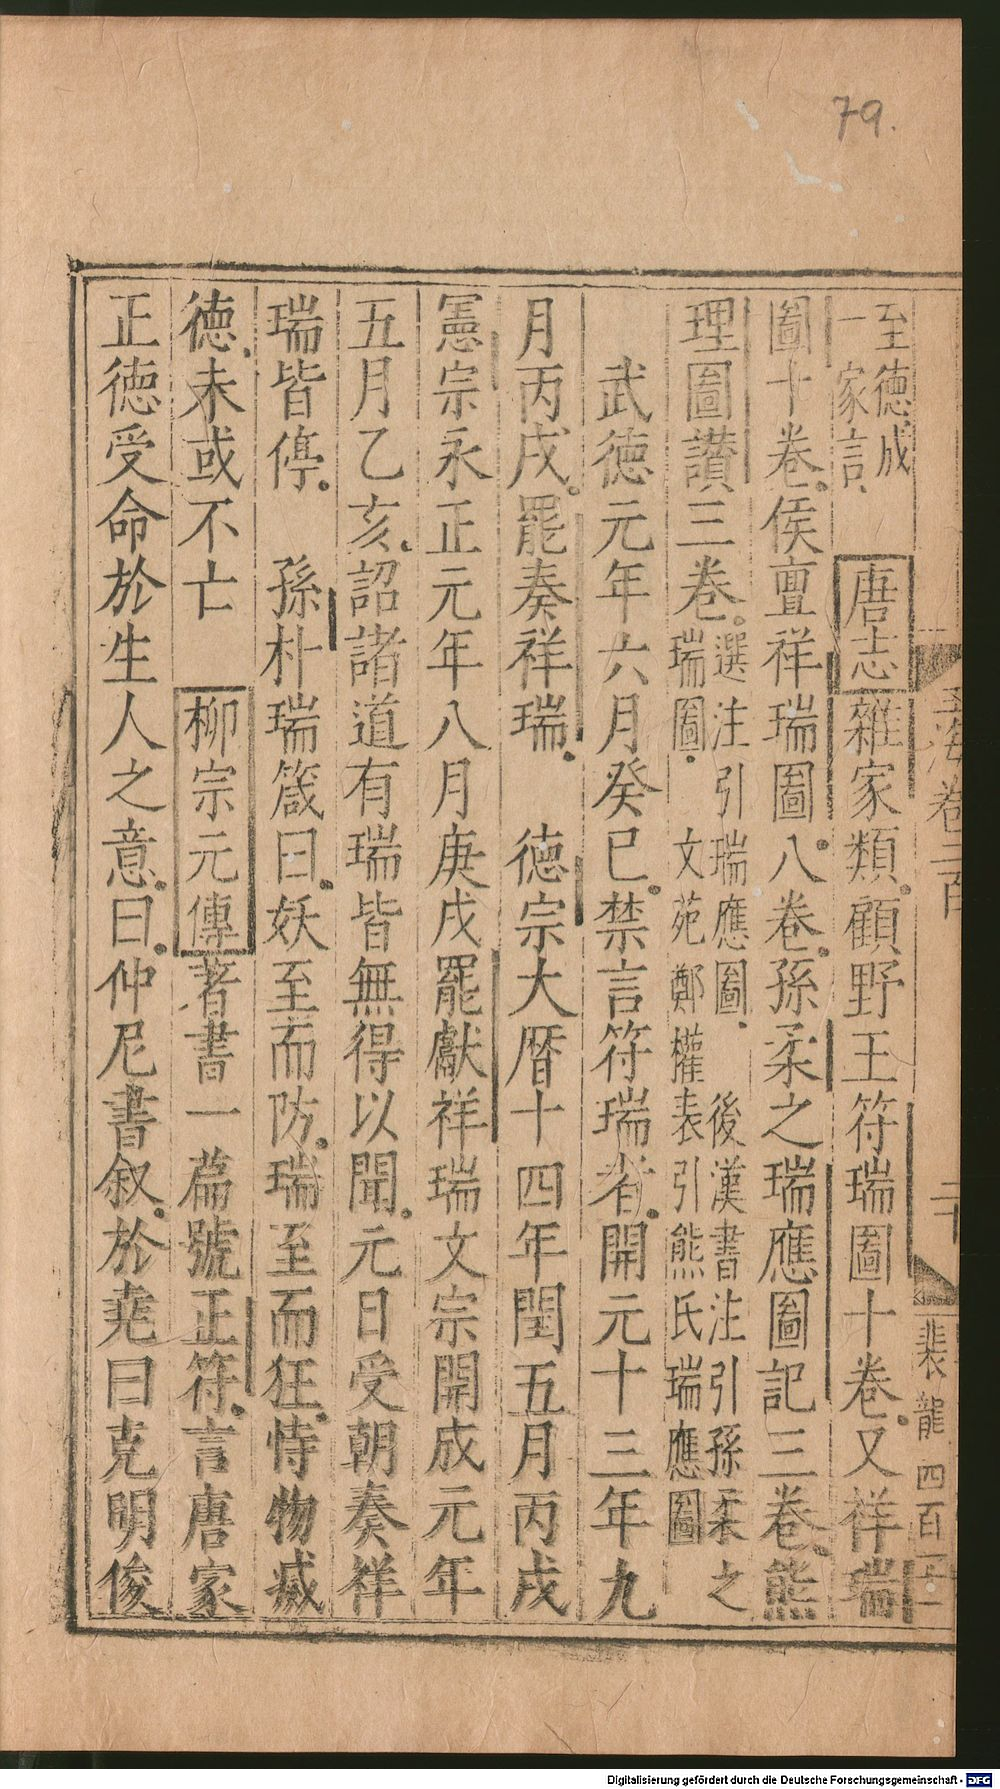 79.
至德成
一家言
唐志雜家類顧野王符瑞圖十卷又祥瑞
圖十卷侯亶祥瑞圖八卷孫柔之瑞應圖記三卷熊
理圖讃三卷
選注引瑞應圖 後漢書注引孫柔之
瑞圖 文苑鄭權表引熊氏瑞應圖
武德元年六月癸巳禁言符瑞者開元十三年九
月丙戌罷奏祥瑞 德宗大曆十四年閏五月丙戌
憲宗永正元年八月庚戌罷獻祥瑞文宗開成元年
五月乙亥詔諸道有瑞皆無得以聞元日受朝奏祥
瑞皆停 孫朴瑞箴曰妖至而防瑞至而狂恃物臧
德未或不亡 柳宗元傳著書一篇號正符言唐家
正德受命於生人之意曰仲尼書叙於堯曰克明俊
玉海卷二百
二十
裴龍 四百二十一
Digitalisierung gefördert durch die Deutsche Forschungsgemeinschaft - DFG